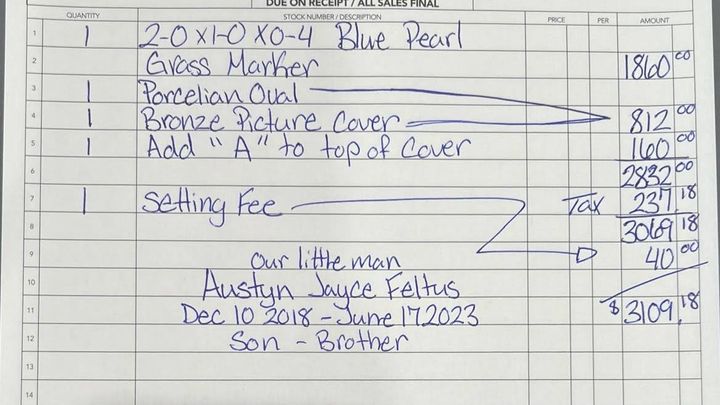 DUE ON RECEIPT / ALL SALES FINAL
QUANTITY STOCK NUMBER / DESCRIPTION PRICE PER AMOUNT
1 1 2-0 x 1-0 x 0-4 Blue Pearl
2 Grass Marker 1860 00
3 1 Porcelian Oval
4 1 Bronze Picture Cover 812 00
5 1 Add "A" to top of Cover 160 00
6 2832 00
7 1 Setting Fee Tax 237.18
8 3069 18
9 Our little man 40 00
10 Austyn Jayce Feltus
11 Dec 10 2018 - June 17 2023 $3109.18
12 Son - Brother
13
14